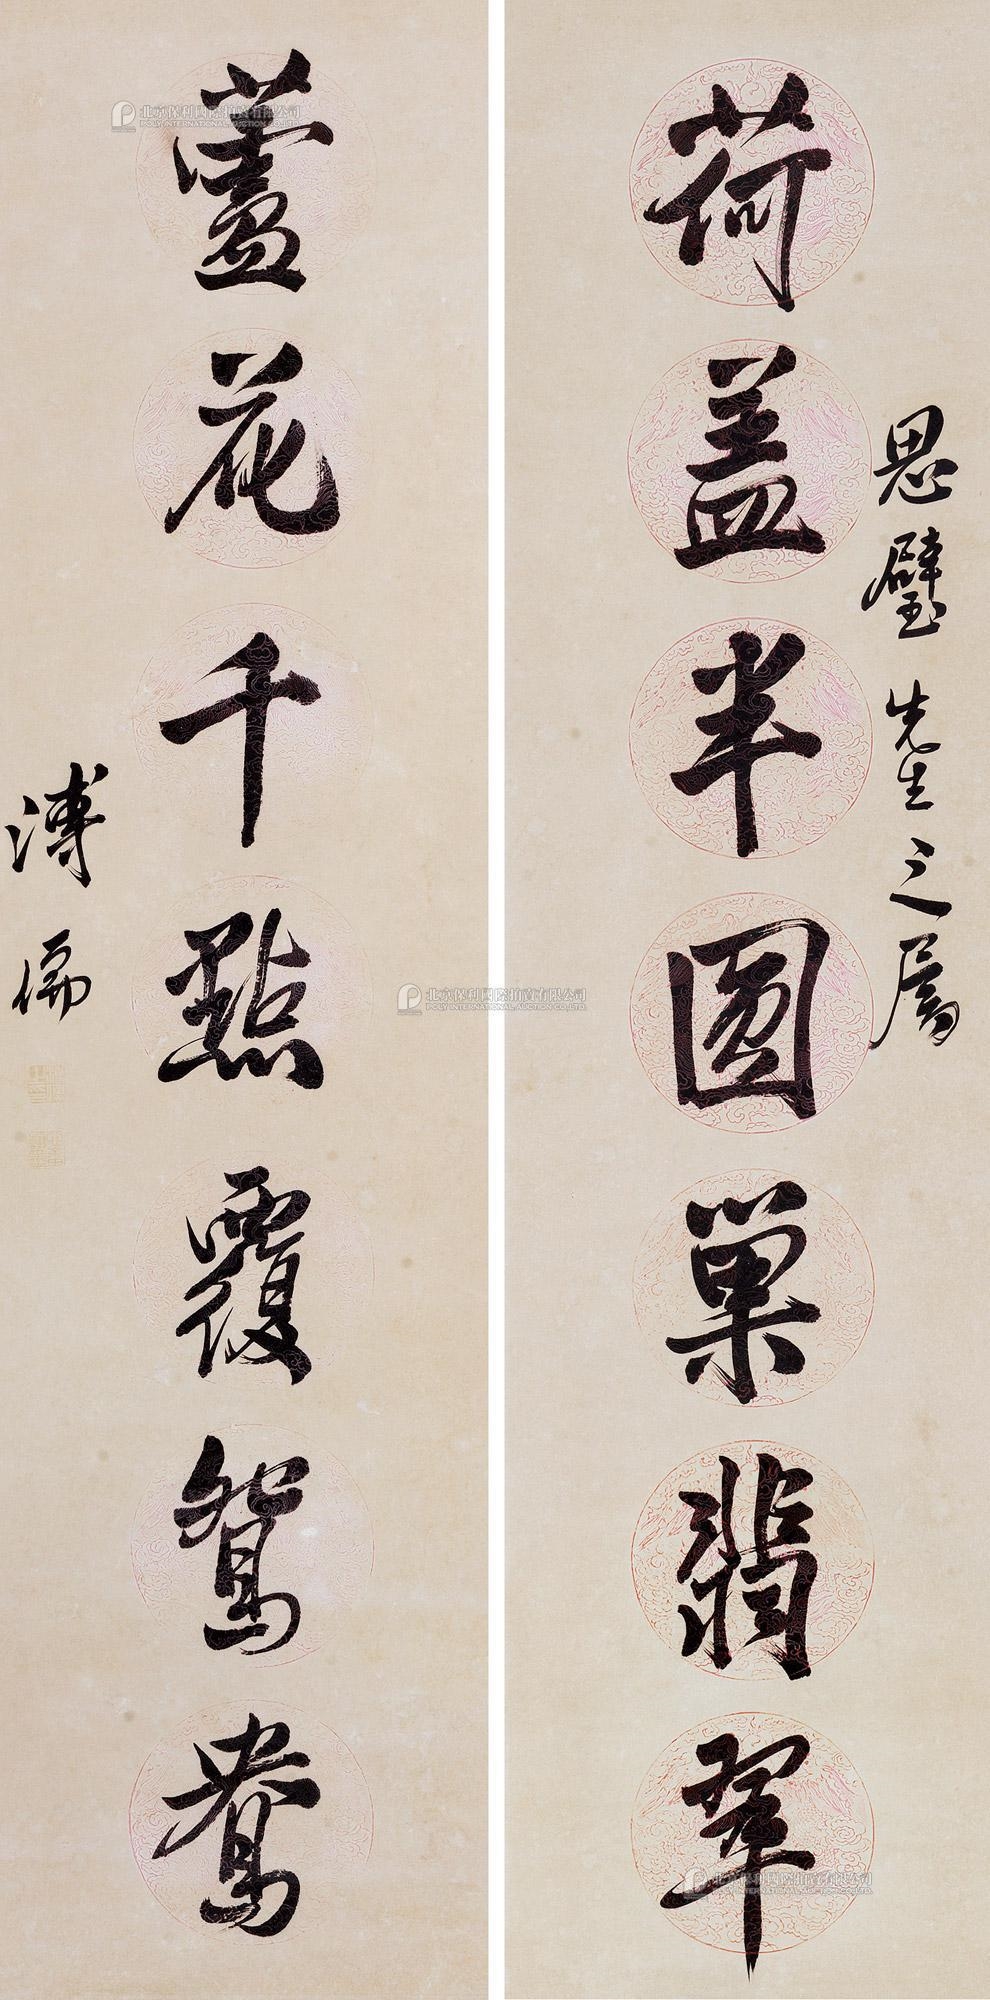 思璧先生之属
荷盖半圆巢翡翠
蘆花千點覆鴛鴦
溥儒
北京保利國際拍賣有限公司
POLY INTERNATIONAL AUCTION CO.,LTD.
北京保利國際拍賣有限公司
POLY INTERNATIONAL AUCTION CO.,LTD.
北京保利國際拍賣有限公司
POLY INTERNATIONAL AUCTION CO.,LTD.